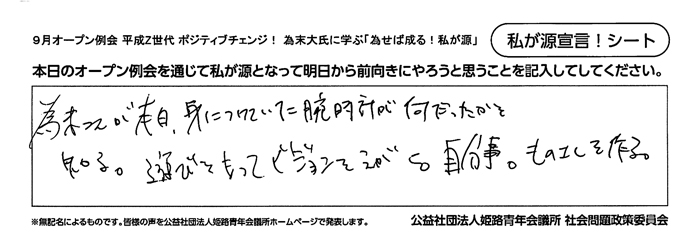 9月オープン例会 平成Z世代 ポジティブチェンジ！ 為末大氏に学ぶ「為せば成る！私が源」
私が源宣言！シート
本日のオープン例会を通じて私が源となって明日から前向きにやろうと思うことを記入してしてください。
為末さんが本日、身につけていた腕時計が何だったかを
知る。遊びをもってビジョンをえがく。自分事。ものさしを作る。
※無記名によるものです。皆様の声を公益社団法人姫路青年会議所ホームページで発表します。
公益社団法人姫路青年会議所 社会問題政策委員会